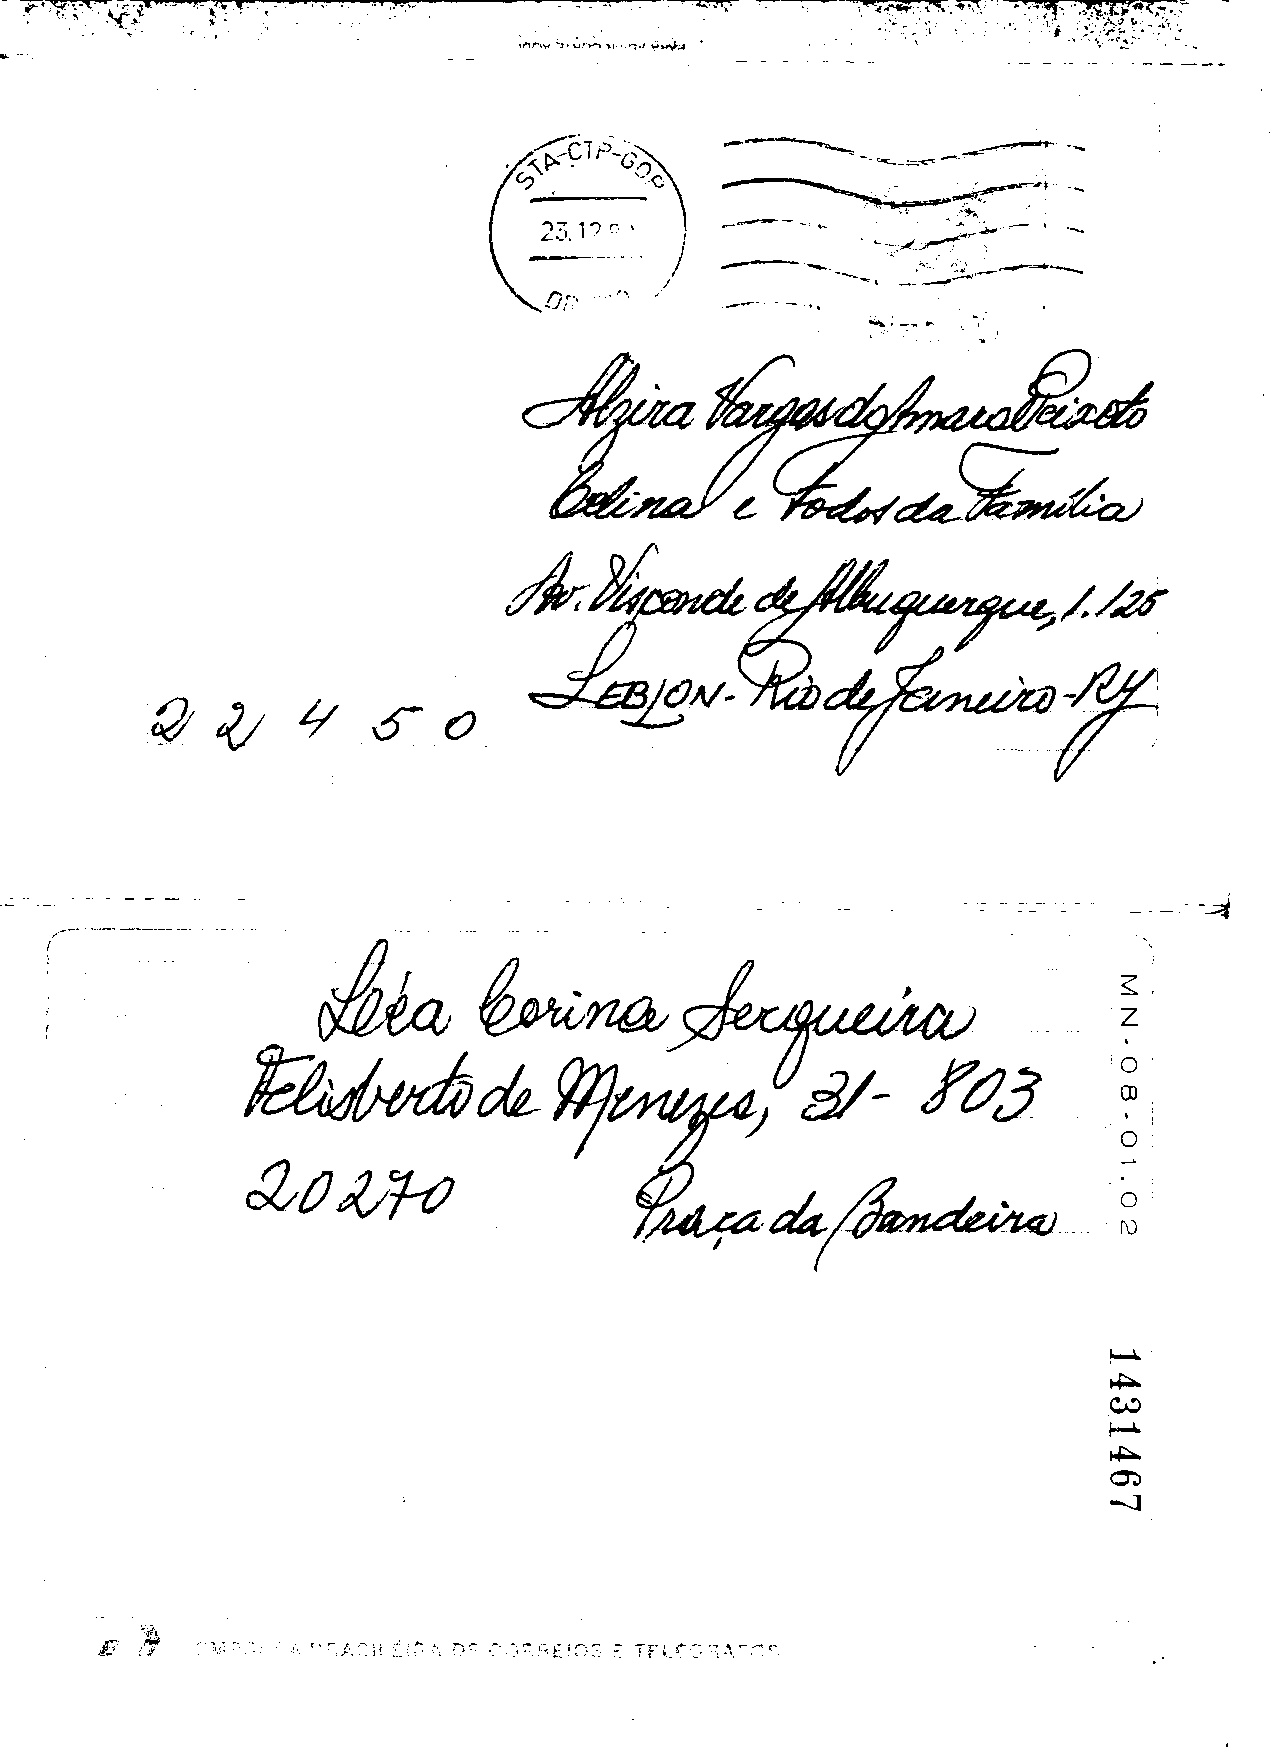 STA-CTP-GOP
23.12
Alzira Vargas do Amaral Peixoto
Celina e Todos da Família
Av. Visconde de Albuquerque, 1.125
LEBLON - Rio de Janeiro - RJ
22450
Léa Corina Serqueira
Felisberto de Menezes, 31 - 803
20270 Praça da Bandeira
MN-08-01.02
1431467
EMPRESA BRASILEIRA DE CORREIOS E TELEGRAFOS